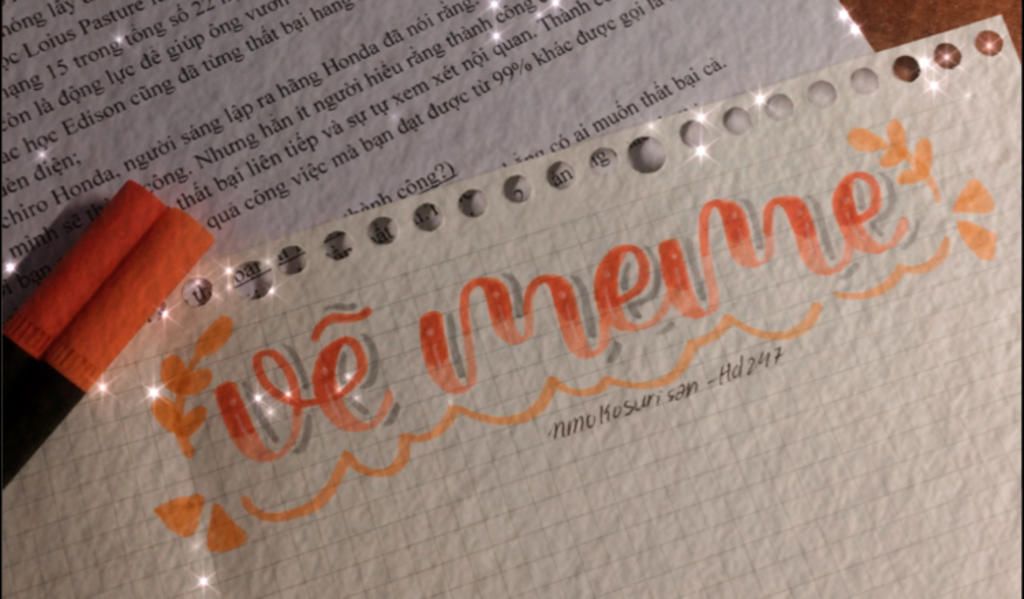 hông lấy
ọc Loius Pasture
hạng 15 trong tổng số 22
còn là động lực để giúp ông vươn
ác học Edison cũng đã từng thất bại hàng
đèn điện;
chiro Honda, người sáng lập ra hãng Honda đã nói rằng
mình sẽ công. Nhưng hẳn ít người hiểu rằng thành công
thất bại liên tiếp và sự tự xem xét nội quan. Thành
quả công việc mà bạn đạt được từ 99% khác được gọi là
có ai muốn thất bại cả.
thành công?)
vẽ meme
nmukosurisan - Hd247